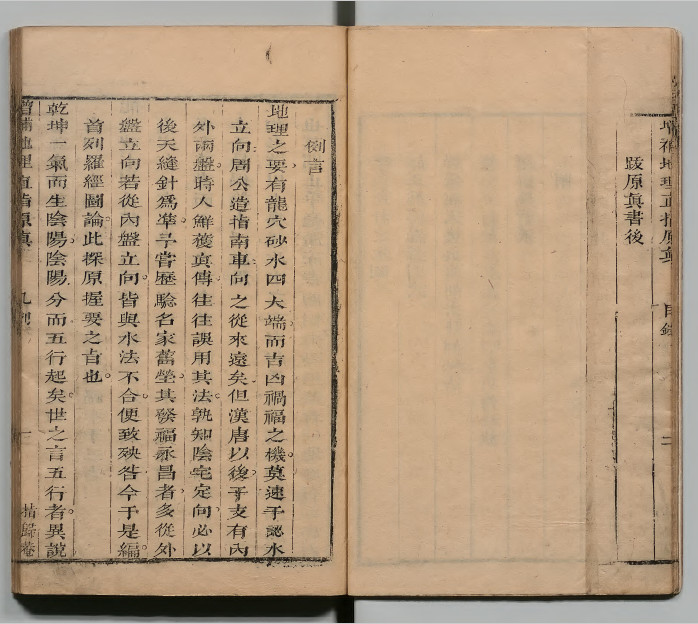 增補地理直指原真 目錄 二
跋原眞書後
例言
地理之要有龍穴砂水四大端而吉凶禍福之機莫速于認水
立向周公造指南車向之從來遠矣但漢唐以後于支有內
外兩盤時人鮮獲眞傳往往誤用其法孰知陰宅定向必以
後天縫針爲凖予嘗歷驗名家舊塋其發福永昌者多從外
盤立向若從內盤立向皆與水法不合便致殃咎今于是編
首列羅經圖論此探原握要之旨也
乾坤一氣而生陰陽陰陽分而五行起矣世之言五行者異說
增補地理直指原眞 凡例 一 指歸卷